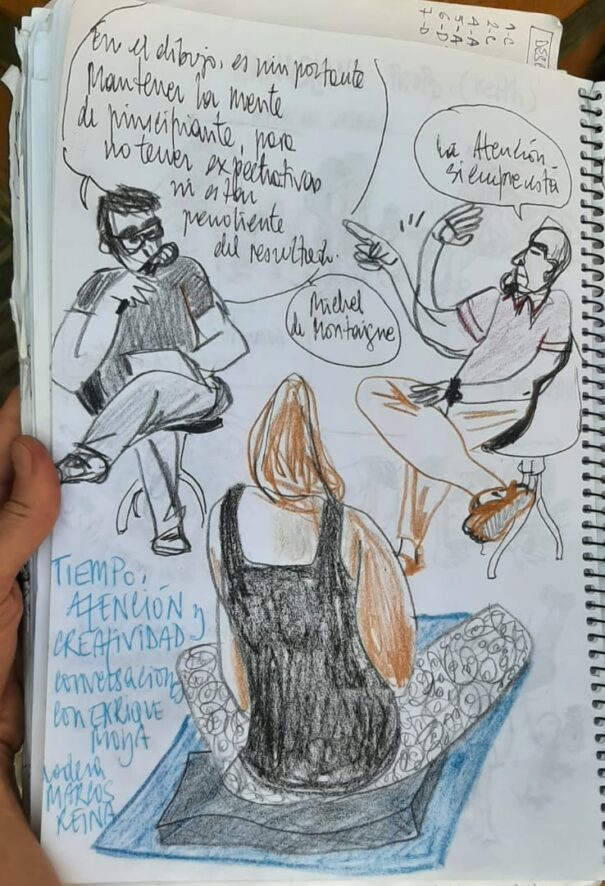 En el dibujo, es importante
Mantener la mente
de principiante, para
no tener expectativas
ni estar
pendiente
del resultado.
La Atención
siempre está
Michel
de Montaigne
TIEMPO,
ATENCIÓN y
CREATIVIDAD
conversación
con ENRIQUE
MOYA
modera
MARCOS
REINA
1-C
2-C
4-A
5-A
6-D
7-D